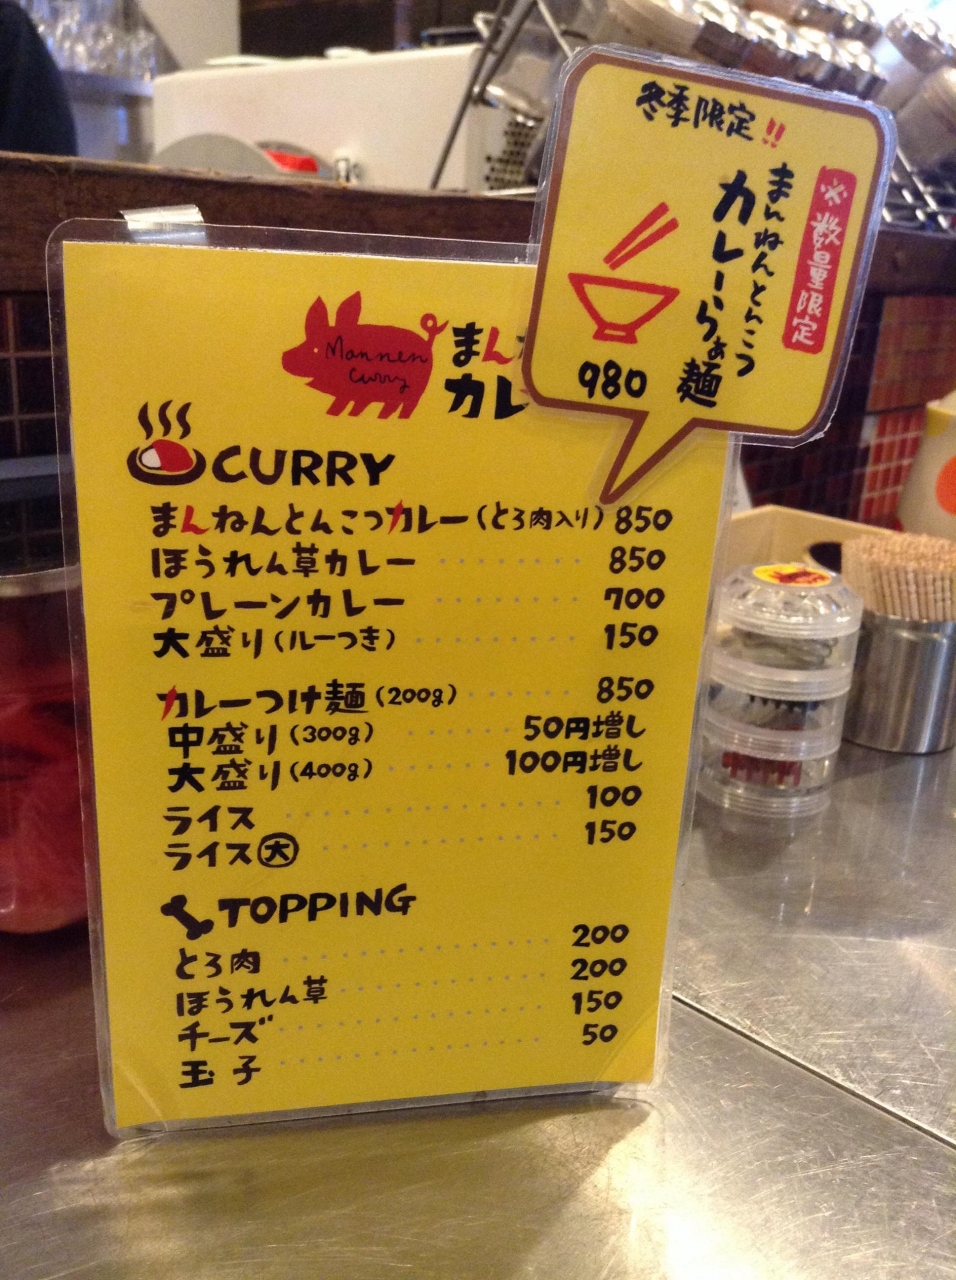 冬季限定!!
※数量限定
まんねんとんこつ
カレーらぁ麺
980
Mannen
Curry
まん
カレ
CURRY
まんねんとんこつカレー(とろ肉入り) 850
ほうれん草カレー 850
プレーンカレー 700
大盛り(ルーつき) 150
カレーつけ麺(200g) 850
中盛り(300g) 50円増し
大盛り(400g) 100円増し
ライス 100
ライス大 150
TOPPING
とろ肉 200
ほうれん草 200
チーズ 150
玉子 50